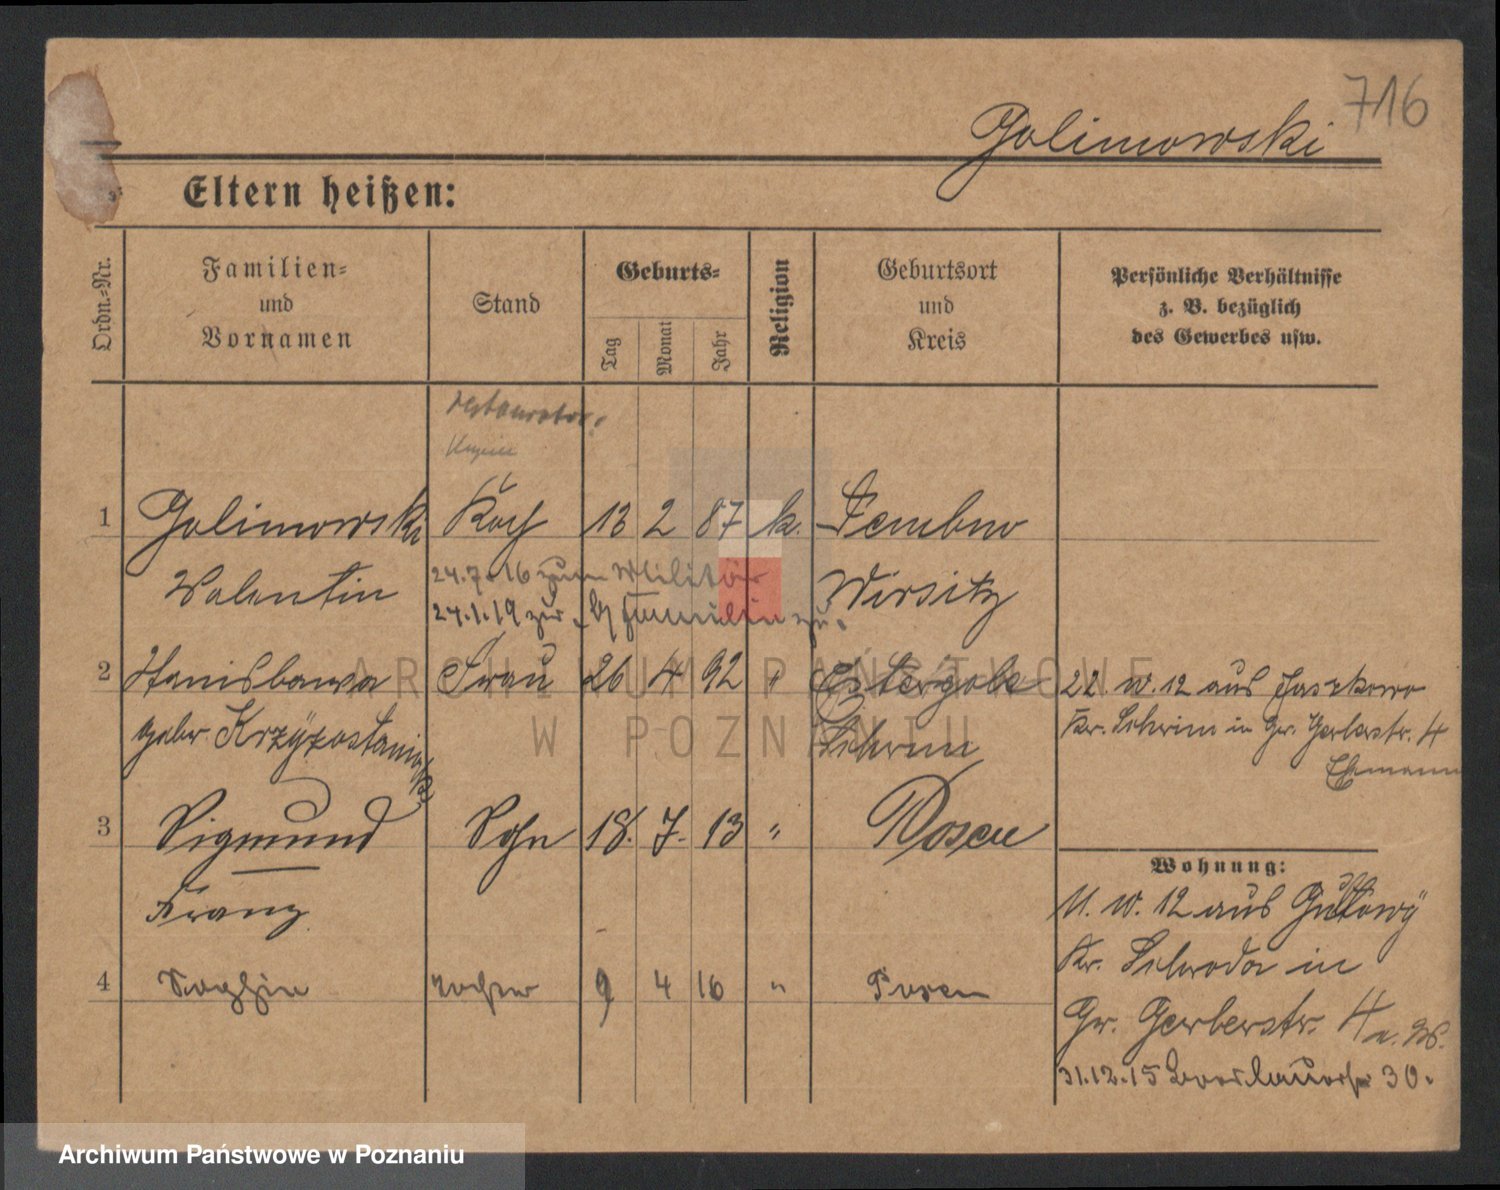 716
Golimowski
Eltern heißen:
Ordn.-Nr.
Familien-
und
Vornamen
Stand
Geburts-
Tag
Monat
Jahr
Religion
Geburtsort
und
Kreis
Persönliche Verhältnisse
z. B. bezüglich
des Gewerbes usw.
1 Golimowski Koch 13 2 87 k. Dembno
Valentin
24.7.16 zum Militär
24.1.19 zur Familie
Wirsitz
2 Stanislawa Frau 26 4 92 "
gebr. Krzyżostaniak
Schrimm
22 XI. 12 aus Jaszkowo
Kr. Schrim in Gr. Gerberstr. 4
Ehemann
3 Sigmund Sohn 18. 7. 13 " Posen
Franz
4 Tochter 9 4 16 " Posen
Wohnung:
11. XI. 12 aus Gultowy
Kr. Schroda in
Gr. Gerberstr. 4
31.12.15 30.
ARCHIWUM PAŃSTWOWE
W POZNANIU
Archiwum Państwowe w Poznaniu